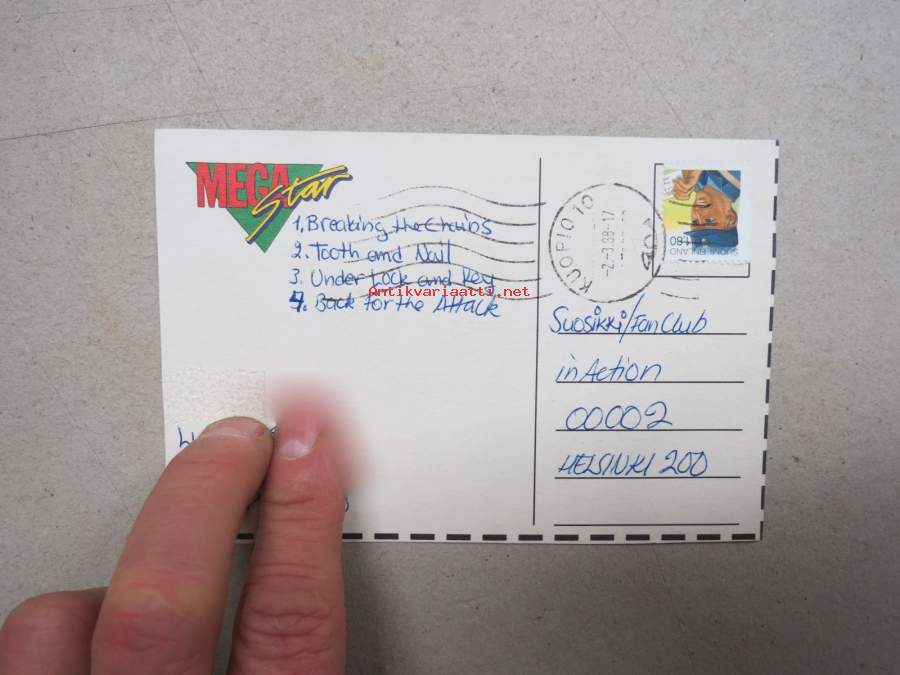 MEGA
Star
1. Breaking the Chains
2. Tooth and Nail
3. Under Lock and Key
4. Back for the Attack
Antikvariaatti.net
KUOPIO 10
-2.-3.88-17
SUOMI FINLAND
1,80
Suosikki/Fan Club
in Action
00002
HELSINKI 200